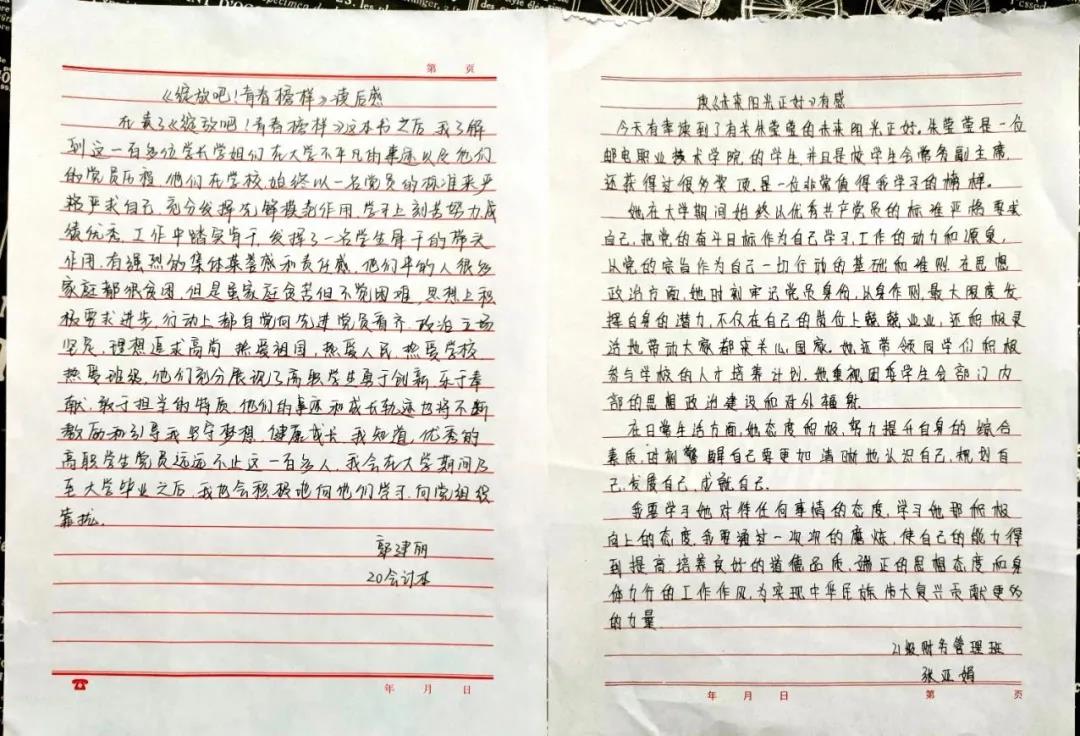 第 页
《绽放吧！青春榜样》读后感
在看了《绽放吧！青春榜样》这本书之后，我了解
到这一百多位学长学姐们在大学不平凡的事迹以及他们
的党员历程，他们在学校始终以一名党员的标准来严
格严求自己，充分发挥先锋模范作用，学习上刻苦努力成
绩优秀，工作中踏实肯干，发挥了一名学生骨干的带头
作用，有强烈的集体荣誉感和责任感，他们中的人很多
家庭都很贫困，但是虽家庭贫苦但不觉困难，思想上积
极要求进步，行动上都自觉向先进党员看齐，政治立场
坚定，理想追求高尚，热爱祖国，热爱人民，热爱学校，
热爱班级，他们充分展现了高职学生勇于创新，乐于奉
献，敢于担当的特质，他们的事迹和成长轨迹也将不断
激励和引导我坚守梦想，健康成长。我知道，优秀的
高职学生党员远远不止这一百多人，我会在大学期间乃
至大学毕业之后，我也会积极地向他们学习，向党组织
靠拢。
郭建丽
20会计本
年 月 日
读《未来阳光正好》有感
今天有幸读到了有关朱莹莹的未来阳光正好。朱莹莹是一位
邮电职业技术学院的学生并且是校学生会常务副主席，
还获得过很多奖项，是一位非常值得我学习的榜样。
她在大学期间始终以优秀共产党员的标准严格要求
自己，把党的奋斗目标作为自己学习，工作的动力和源泉，
从党的宗旨作为自己一切行动的基础和准则。在思想
政治方面，她时刻牢记党员身份，以身作则，最大限度发
挥自身的潜力，不仅在自己的岗位上兢兢业业，还积极灵
活地带动大家都来关心国家。她还带领同学们积极
参与学校的人才培养计划，她重视团委学生会部门内
部的思想政治建设和对外辐射。
在日常生活方面，她态度积极，努力提升自身的综合
素质，时刻警醒自己要更加清晰地认识自己，规划自
己，发展自己，成就自己。
我要学习她对待任何事情的态度，学习她那积极
向上的态度，我要通过一次次的磨炼，使自己的能力得
到提高，培养良好的道德品质，端正的思想态度和身
体力行的工作作风，为实现中华民族伟大复兴贡献更多
的力量
21级财务管理班
张亚娟
年 月 日 第 页